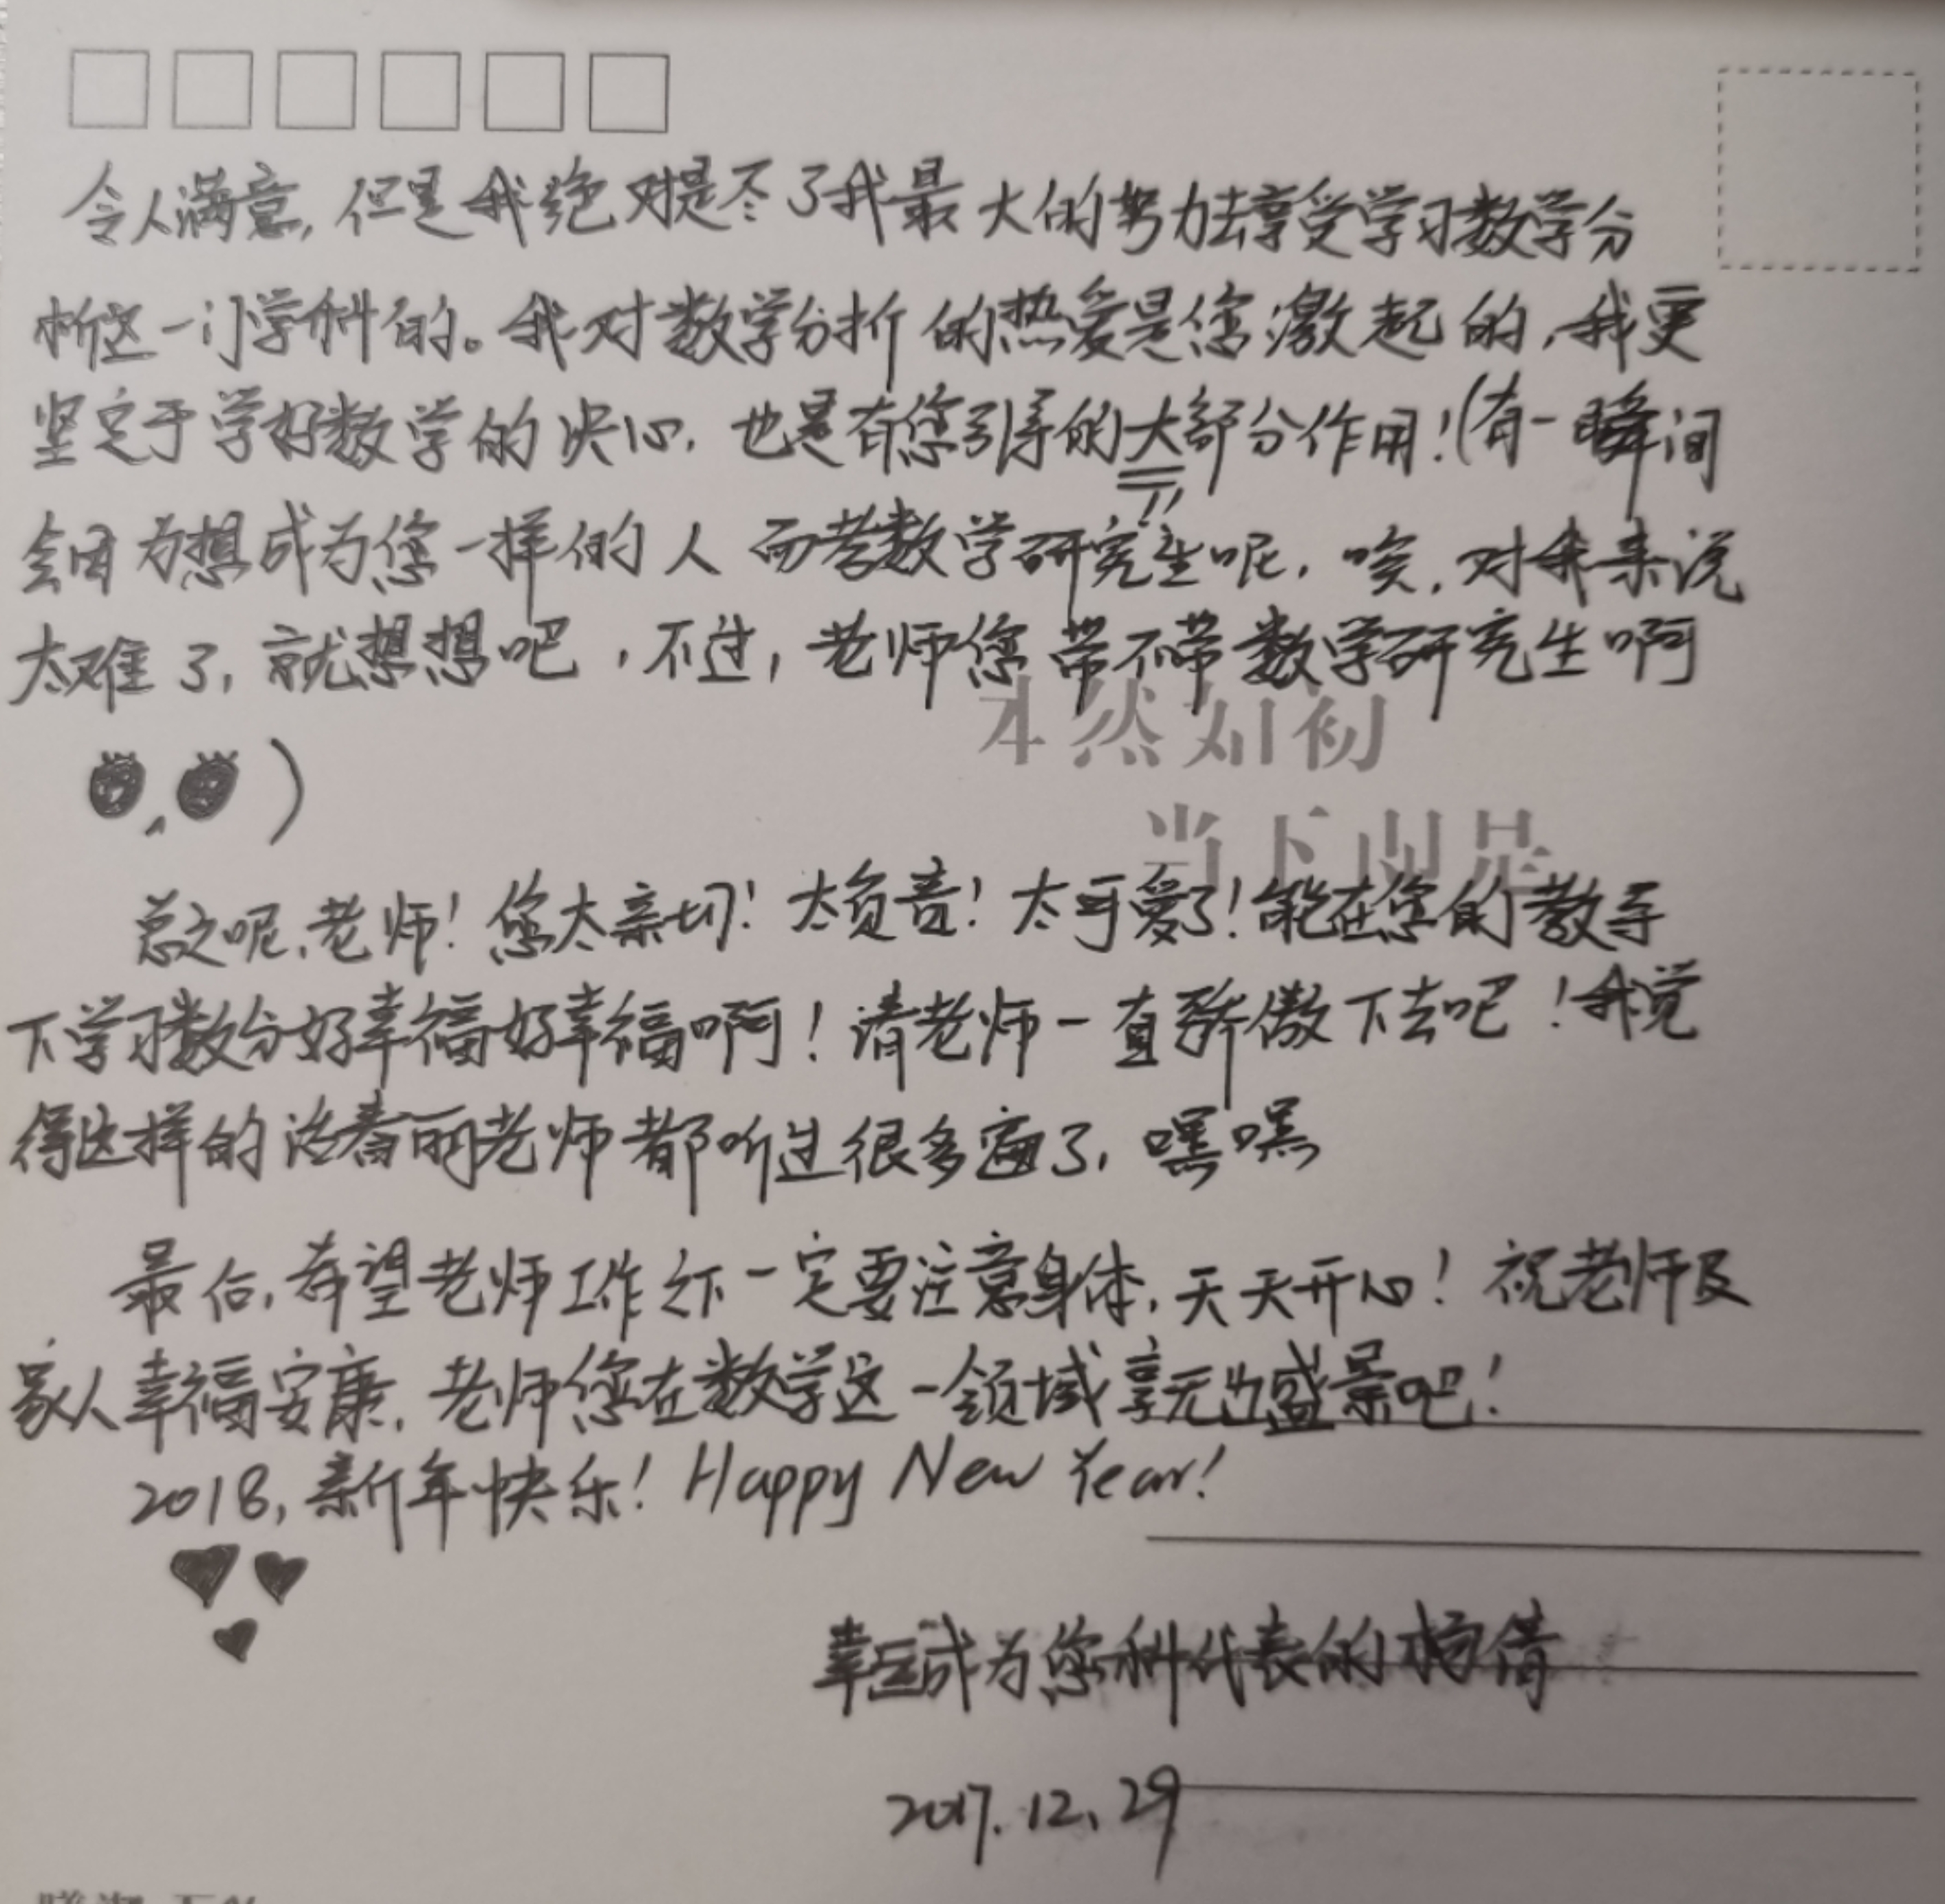 令人满意，但是我绝对是尽了我最大的努力去享受学习数学分
析这一门学科的。我对数学分析的热爱是您激起的，我更
坚定于学好数学的决心，也是有您引导的大部分作用！(有一瞬间
会因为想成为您一样的人而考数学研究生呢，唉，对我来说
太难了，就想想吧，不过，老师您带不带数学研究生啊
)
本然如初
当下即是
总之呢，老师！您太亲切！太负责！太可爱了！能在您的教导
下学习数分好幸福好幸福啊！请老师一直骄傲下去吧！我觉
得这样的话着前老师都听过很多遍了，嘿嘿
最后，希望老师工作之下一定要注意身体，天天开心！祝老师及
家人幸福安康，老师您在数学这一领域享无上盛景吧！
2018，新年快乐！Happy New Year！
幸运成为您科代表的杨倩
2017.12.29